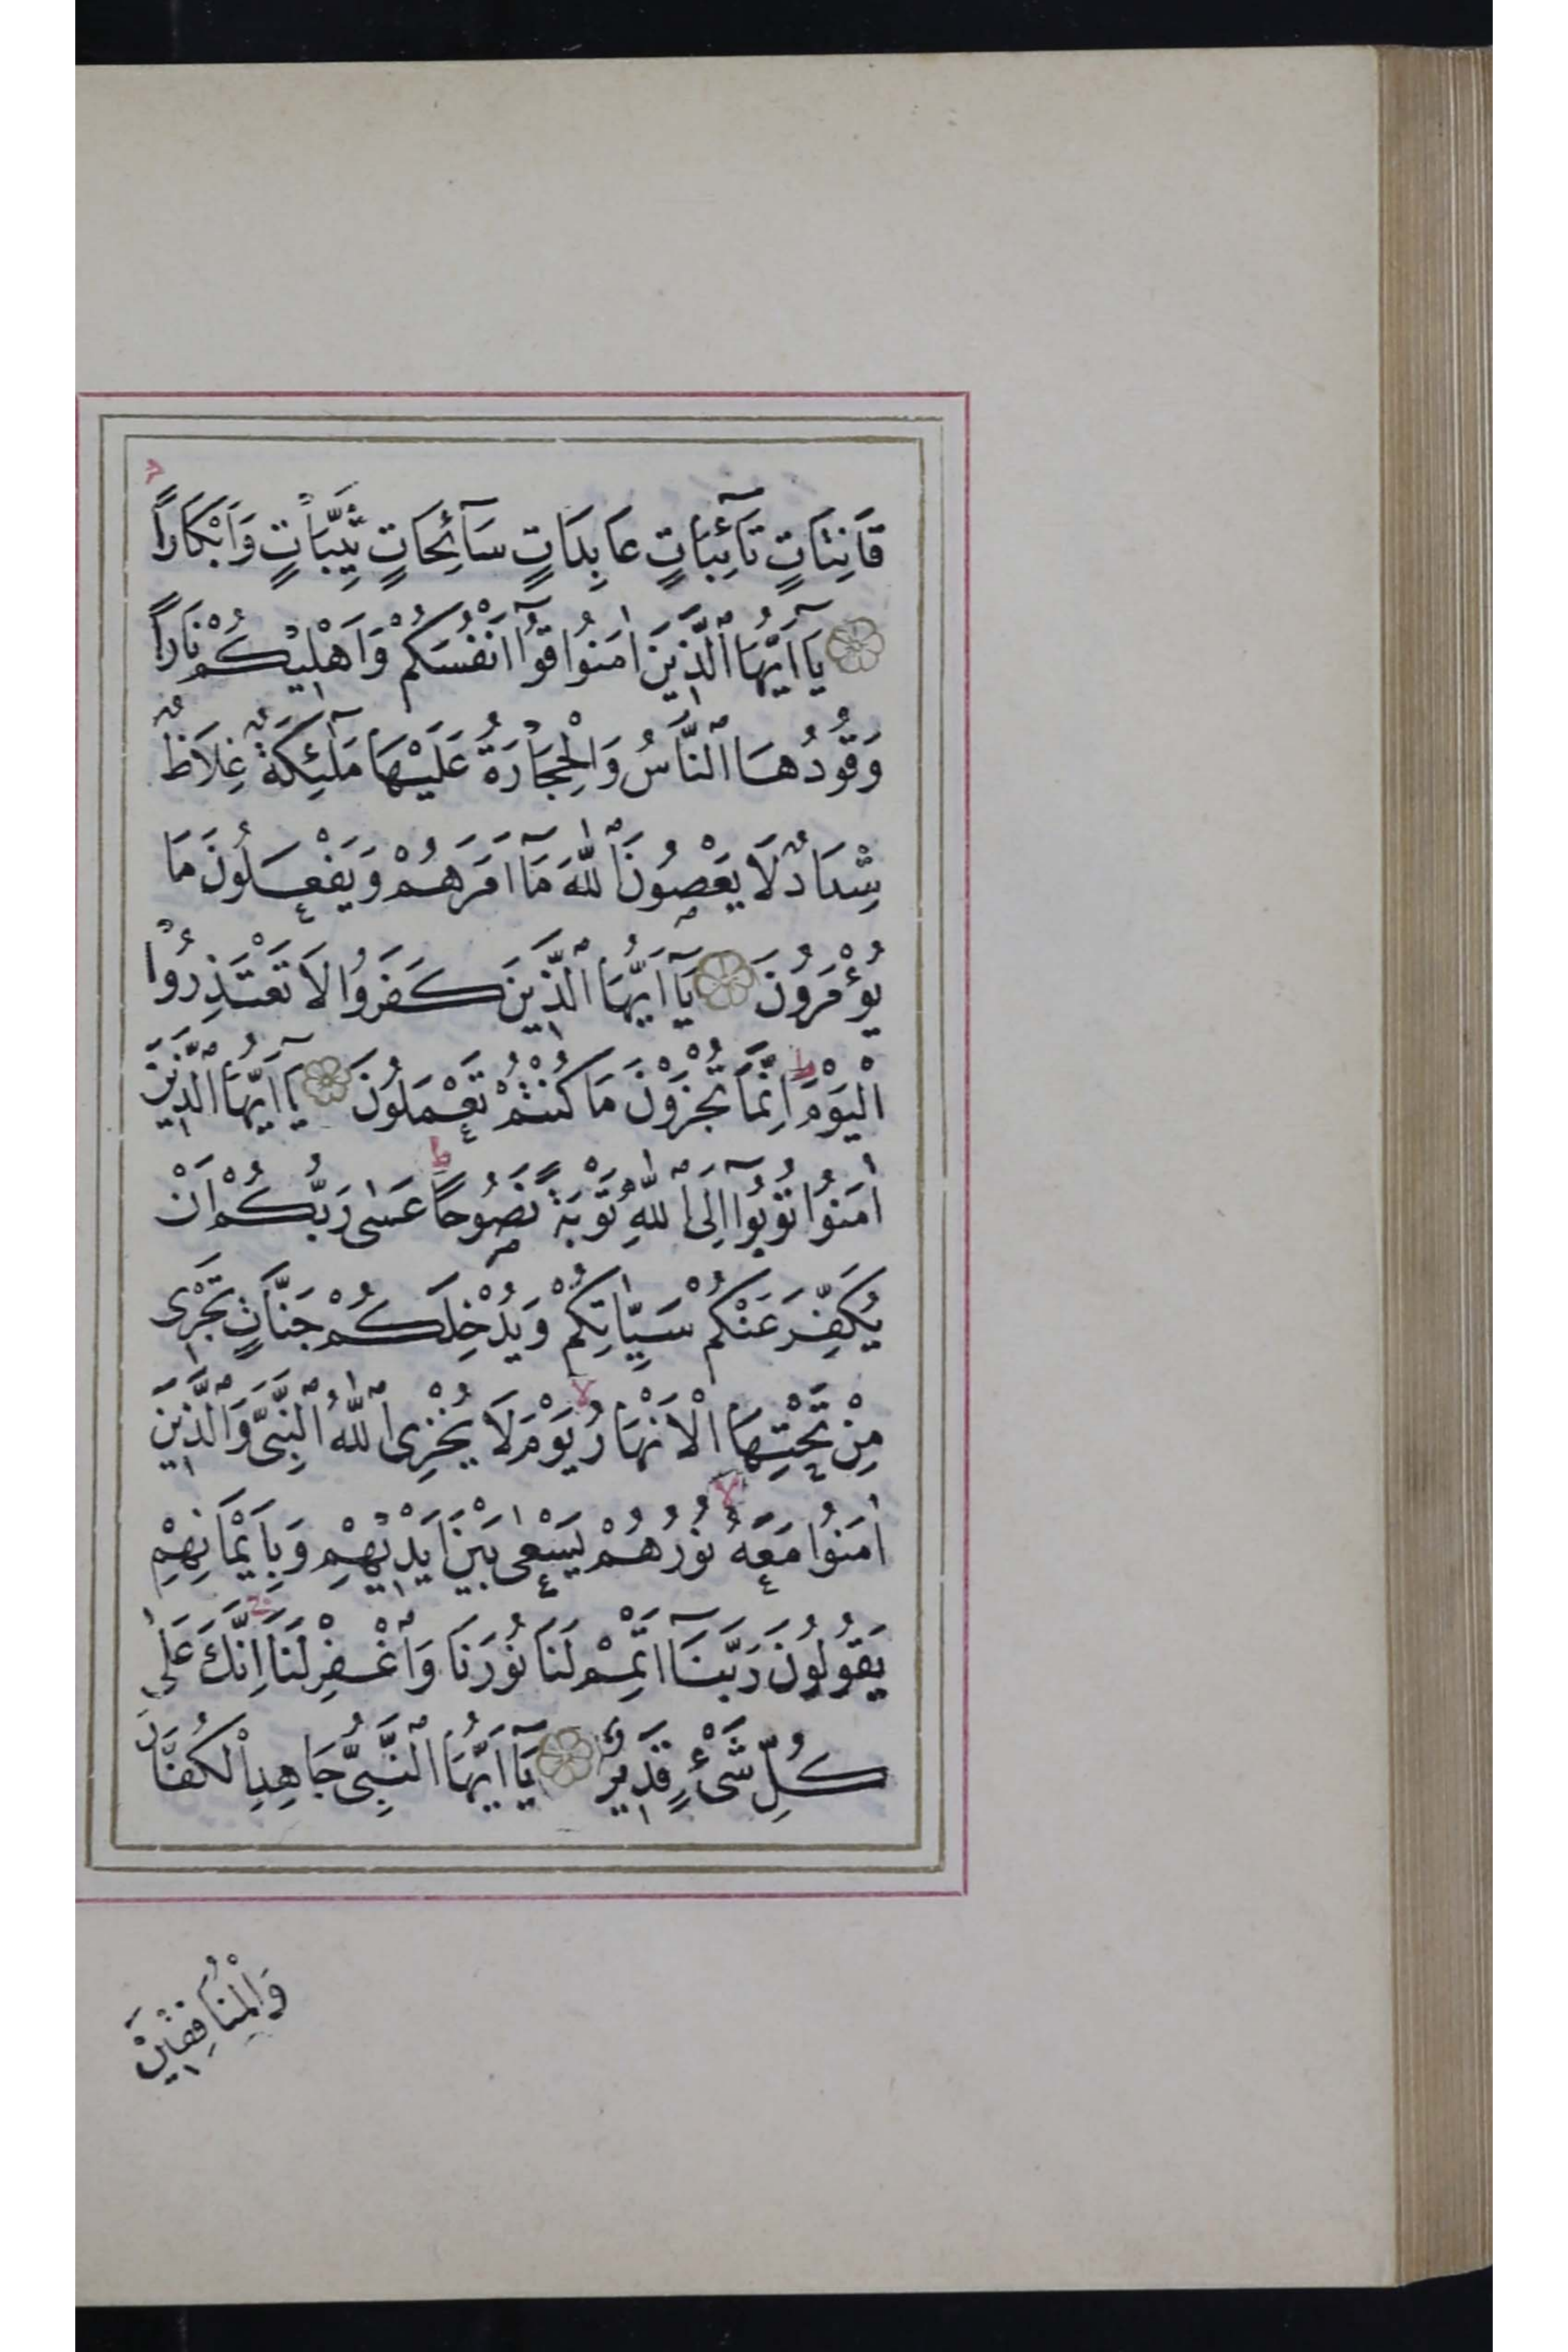 قَانِتَاتٍ تَآئِبَاتٍ عَابِدَاتٍ سَآئِحَاتٍ ثَيِّبَاتٍ وَاَبْكَارًا
يَآ اَيُّهَا ٱلَّذِينَ اٰمَنُوا قُوٓا اَنْفُسَكُمْ وَاَهْلِيكُمْ نَارًا
وَقُودُهَا ٱلنَّاسُ وَالْحِجَارَةُ عَلَيْهَا مَلٰٓئِكَةٌ غِلَاظٌ
شِدَادٌ لَا يَعْصُونَ ٱللّٰهَ مَآ اَمَرَهُمْ وَيَفْعَلُونَ مَا
يُؤْمَرُونَ يَآ اَيُّهَا ٱلَّذِينَ كَفَرُوا لَا تَعْتَذِرُوا
الْيَوْمَ ط اِنَّمَا تُجْزَوْنَ مَا كُنْتُمْ تَعْمَلُونَ يَآ اَيُّهَا ٱلَّذِينَ
اٰمَنُوا تُوبُوٓا اِلَى ٱللّٰهِ تَوْبَةً نَصُوحًا ط عَسٰى رَبُّكُمْ اَنْ
يُكَفِّرَ عَنْكُمْ سَيِّاٰتِكُمْ وَيُدْخِلَكُمْ جَنَّاتٍ تَجْرِى
مِنْ تَحْتِهَا الْاَنْهَارُ لا يَوْمَ لَا يُخْزِى ٱللّٰهُ ٱلنَّبِىَّ وَٱلَّذِينَ
اٰمَنُوا مَعَهُ لا نُورُهُمْ يَسْعٰى بَيْنَ اَيْدِيهِمْ وَبِاَيْمَانِهِمْ
يَقُولُونَ رَبَّنَآ اَتْمِمْ لَنَا نُورَنَا وَٱغْفِرْ لَنَا ج اِنَّكَ عَلٰى
كُلِّ شَىْءٍ قَدِيرٌ يَآ اَيُّهَا ٱلنَّبِىُّ جَاهِدِ الْكُفَّارَ
وَالْمُنَافِقِينَ